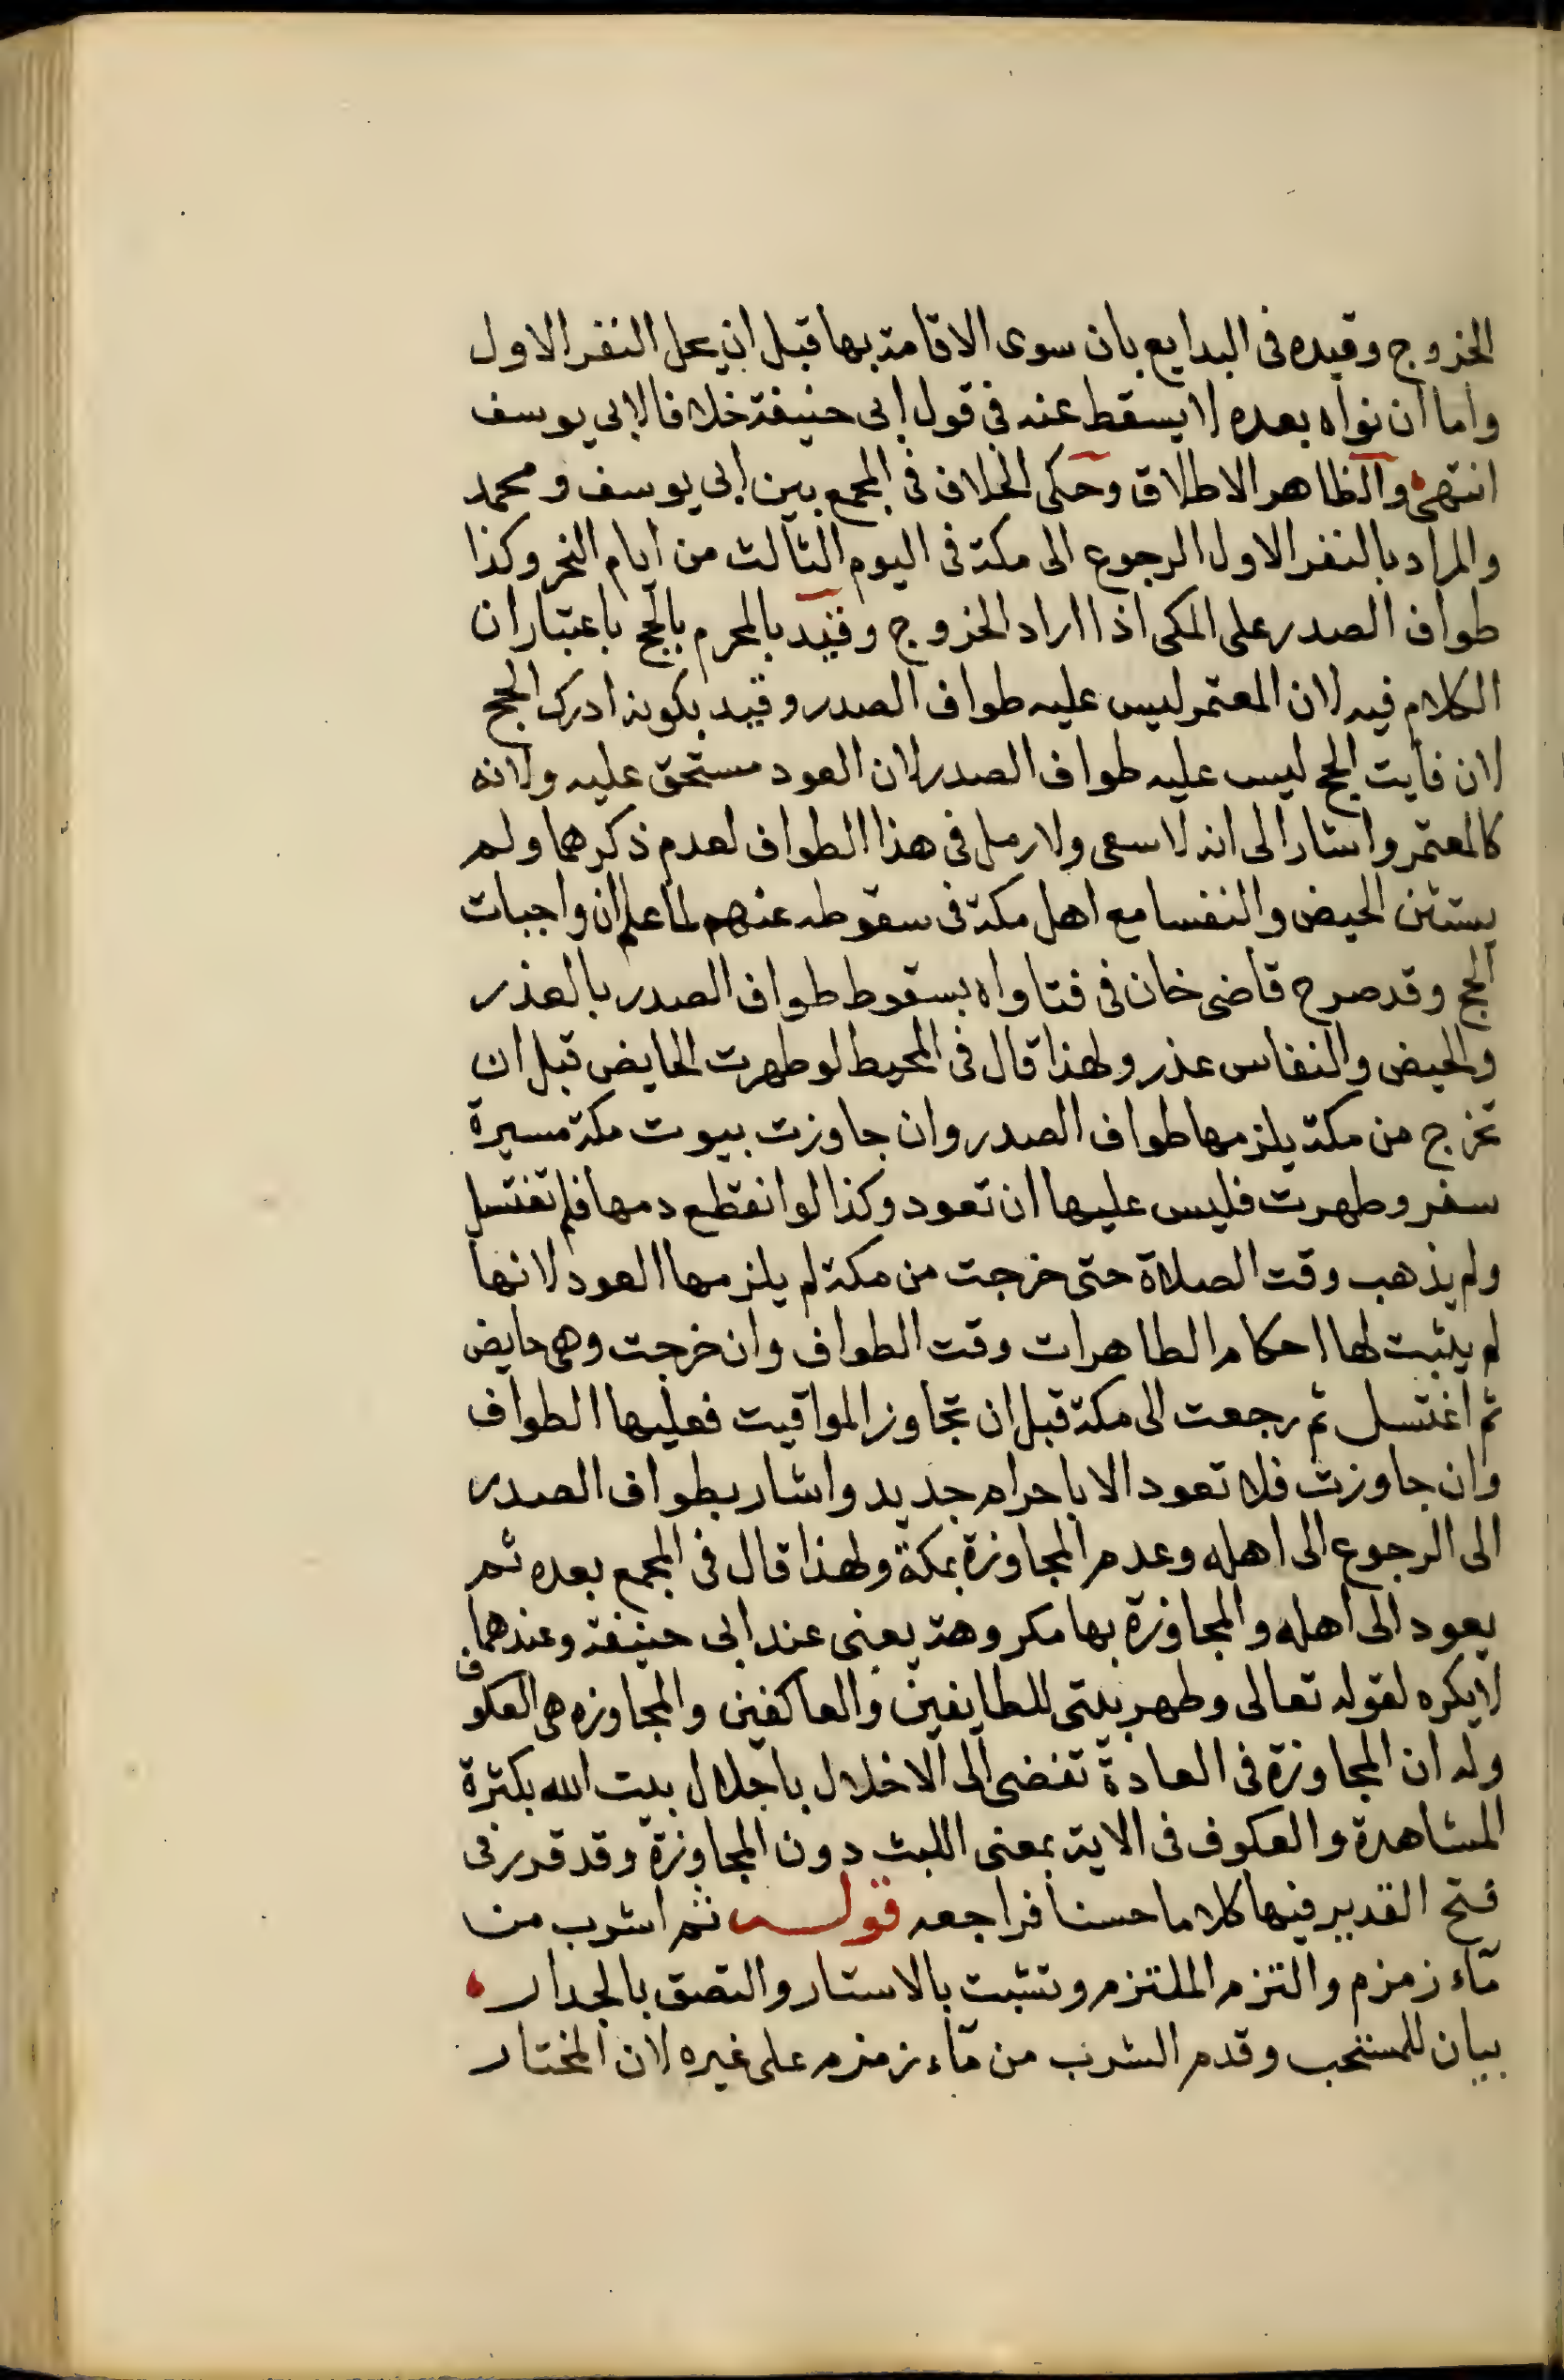 الخروج وقيده فى البدايع بان سوى الاقامة بها قبل ان يحل النفر الاول
واما ان نواه بعده لا يسقط عنه فى قول ابى حنيفة خلافا لابى يوسف
انتهى والظاهر الاطلاق وحكى الخلاف فى المجمع بين ابى يوسف ومحمد
والمراد بالنفر الاول الرجوع الى مكة فى اليوم الثالث من ايام النحر وكذا
طواف الصدر على المكى اذا اراد الخروج وقيد بالمحرم بالحج باعتبار ان
الكلام فيه لان المعتمر ليس عليه طواف الصدر وقيد بكونه ادرك الحج
لان فايت الحج ليس عليه طواف الصدر لان العود مستحق عليه ولانه
كالمعتمر واشار الى انه لا سعى ولا رمل فى هذا الطواف لعدم ذكرهما ولم
يستثن الحيض والنفسا مع اهل مكة فى سقوطه عنهم لما علم ان واجبات
الحج وقد صرح قاضى خان فى فتاواه بسقوط طواف الصدر بالعذر
والحيض والنفاس عذر ولهذا قال فى المحيط لو طهرت الحايض قبل ان
تخرج من مكة يلزمها طواف الصدر وان جاوزت بيوت مكة مسيرة
سفر وطهرت فليس عليها ان تعود وكذا لو انقطع دمها فلم تغتسل
ولم يذهب وقت الصلاة حتى خرجت من مكة لم يلزمها العود لانها
لم يثبت لها احكام الطاهرات وقت الطواف وان خرجت وهى حايض
ثم اغتسل ثم رجعت الى مكة قبل ان تجاوز المواقيت فعليها الطواف
وان جاوزت فلا تعود الا باحرام جديد واشار بطواف الصدر
الى الرجوع الى اهله وعدم المجاوزة بمكة ولهذا قال فى المجمع بعده ثم
يعود الى اهله والمجاوزة بها مكروهة يعنى عند ابى حنيفة وعندهما
لا يكره لقوله تعالى وطهر بيتى للطايفين والعاكفين والمجاوزه هى العكوف
وله ان المجاوزة فى العادة تفضى الى الاخلال باجلال بيت الله بكثرة
المشاهدة والعكوف فى الاية بمعنى اللبث دون المجاوزة وقد قرر فى
فتح القدير فيها كلاما حسنا فراجعه قوله ثم اشرب من
مآء زمزم والتزم الملتزم وتشبت بالاستار والتصق بالجدار
بيان للمستحب وقدم الشرب من مآء زمزم على غيره لان المختار